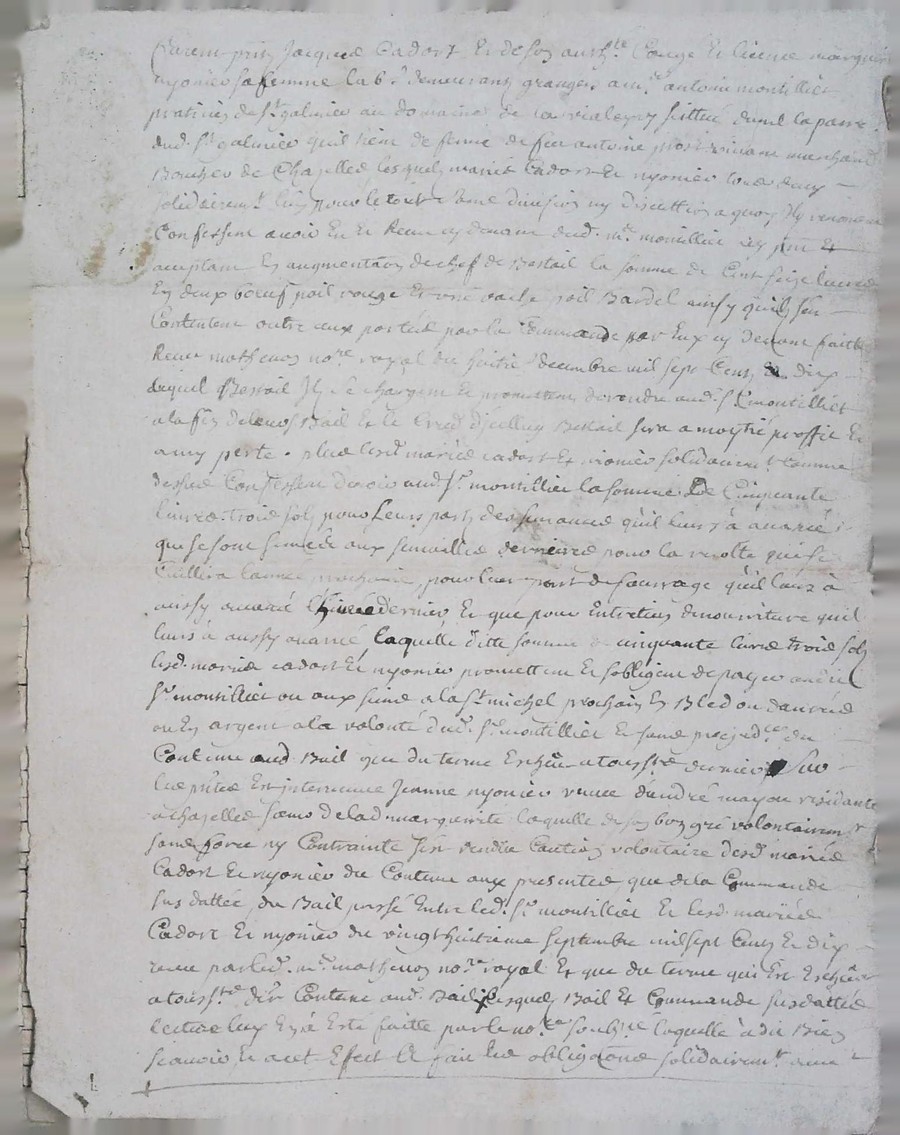 Furent pntz Jacques Cadort Et de son autho.té Congé Et licence marguer
nyonier sa femme demeurans grangers a m.e antoine montillier
praticien de S.t galmier au domaine de la vialeyry sittué dans la parr.e
dud. S.t galmier quil tient de ferme de feu antoine vivant marchand
Boucher de Chazelles lesquels mariés Cadort Et nyonier tous deux
solidairem.t l'un pour le tout sans division ny discution a quoy Ils renoncent
Confessent avoir Eu et Receu cy devant dud. m.e montillier icy pnt Et
acceptant En augmenta.on de chef de Bestail la somme de Cent seize livres
En deux bœufs poil rouge Et une vache poil Bardel ainsy quils sen
Contentent outre ceux portés par la Commande par Eux cy devant faitte
Receu mathevon no.re royal du huitie.e decembre mil sept Cents Et dix
duquel Bestail Ils se chargent Et promettent de rendre aud. S.r montillier
a la fin de leurs Bail Et le Croid d'icelluy Bestail sera a moytié proffit Et
a my perte. plus lesd. mariés cadort Et nionier solidairem.t Comme
dessus Confessent devoir aud. S.r montillier la somme De Cinquante
livres trois sols pour Leurs parts des semances qu'il leurs à avancé
qui se sont semés aux semailles dernieres pour la recolte qui se
Cuillira lannee prochaine, pour leur part de fourrage qu'il leurs à
aussy avancé L'hivers dernier Et que pour Entretien de nourriture quil
leurs à aussy avancé, Laquelle ditte somme de cinquante livres trois sols
lesd. mariés cadort Et nyonier promettent Et sobligent de payer aud.
S.r montillier ou aux siens a la S.t michel prochain En Bled ou danrées
ou En argent a la volonté dud. S.r montillier Et sans prejud.ce du
Contenu aud. Bail que du terme Escheu a touss.ts dernier Sur
les pntes Est intervenue Jeanne nyonier veuve d'andré mayou residante
a chazelles sœur de lad. marguerite laquelle de son bon gré volontairem.t
sans force ny Contrainte s'est rendue Caution volontaire desd. mariés
Cadort Et nyonier du Contenu aux presentes, que de la Commande
sus dattée, du Bail passé Entre led. S.r montillier Et lesd. mariés
Cadort Et nyonier du vingt huitieme septembre mil sept Cents Et dix
receu par led. m.e mathevon no.re royal Et que du terme qui Est Escheu
a touss.ts der Contenu aud. Bail desquels Bail Et Commande susdattés
lecture leur En a Esté faitte par le no.re soubs.né laquelle à dit Bien
scavoir Et a cet Effect Elle fait les obliga.ons solidairem.t avec